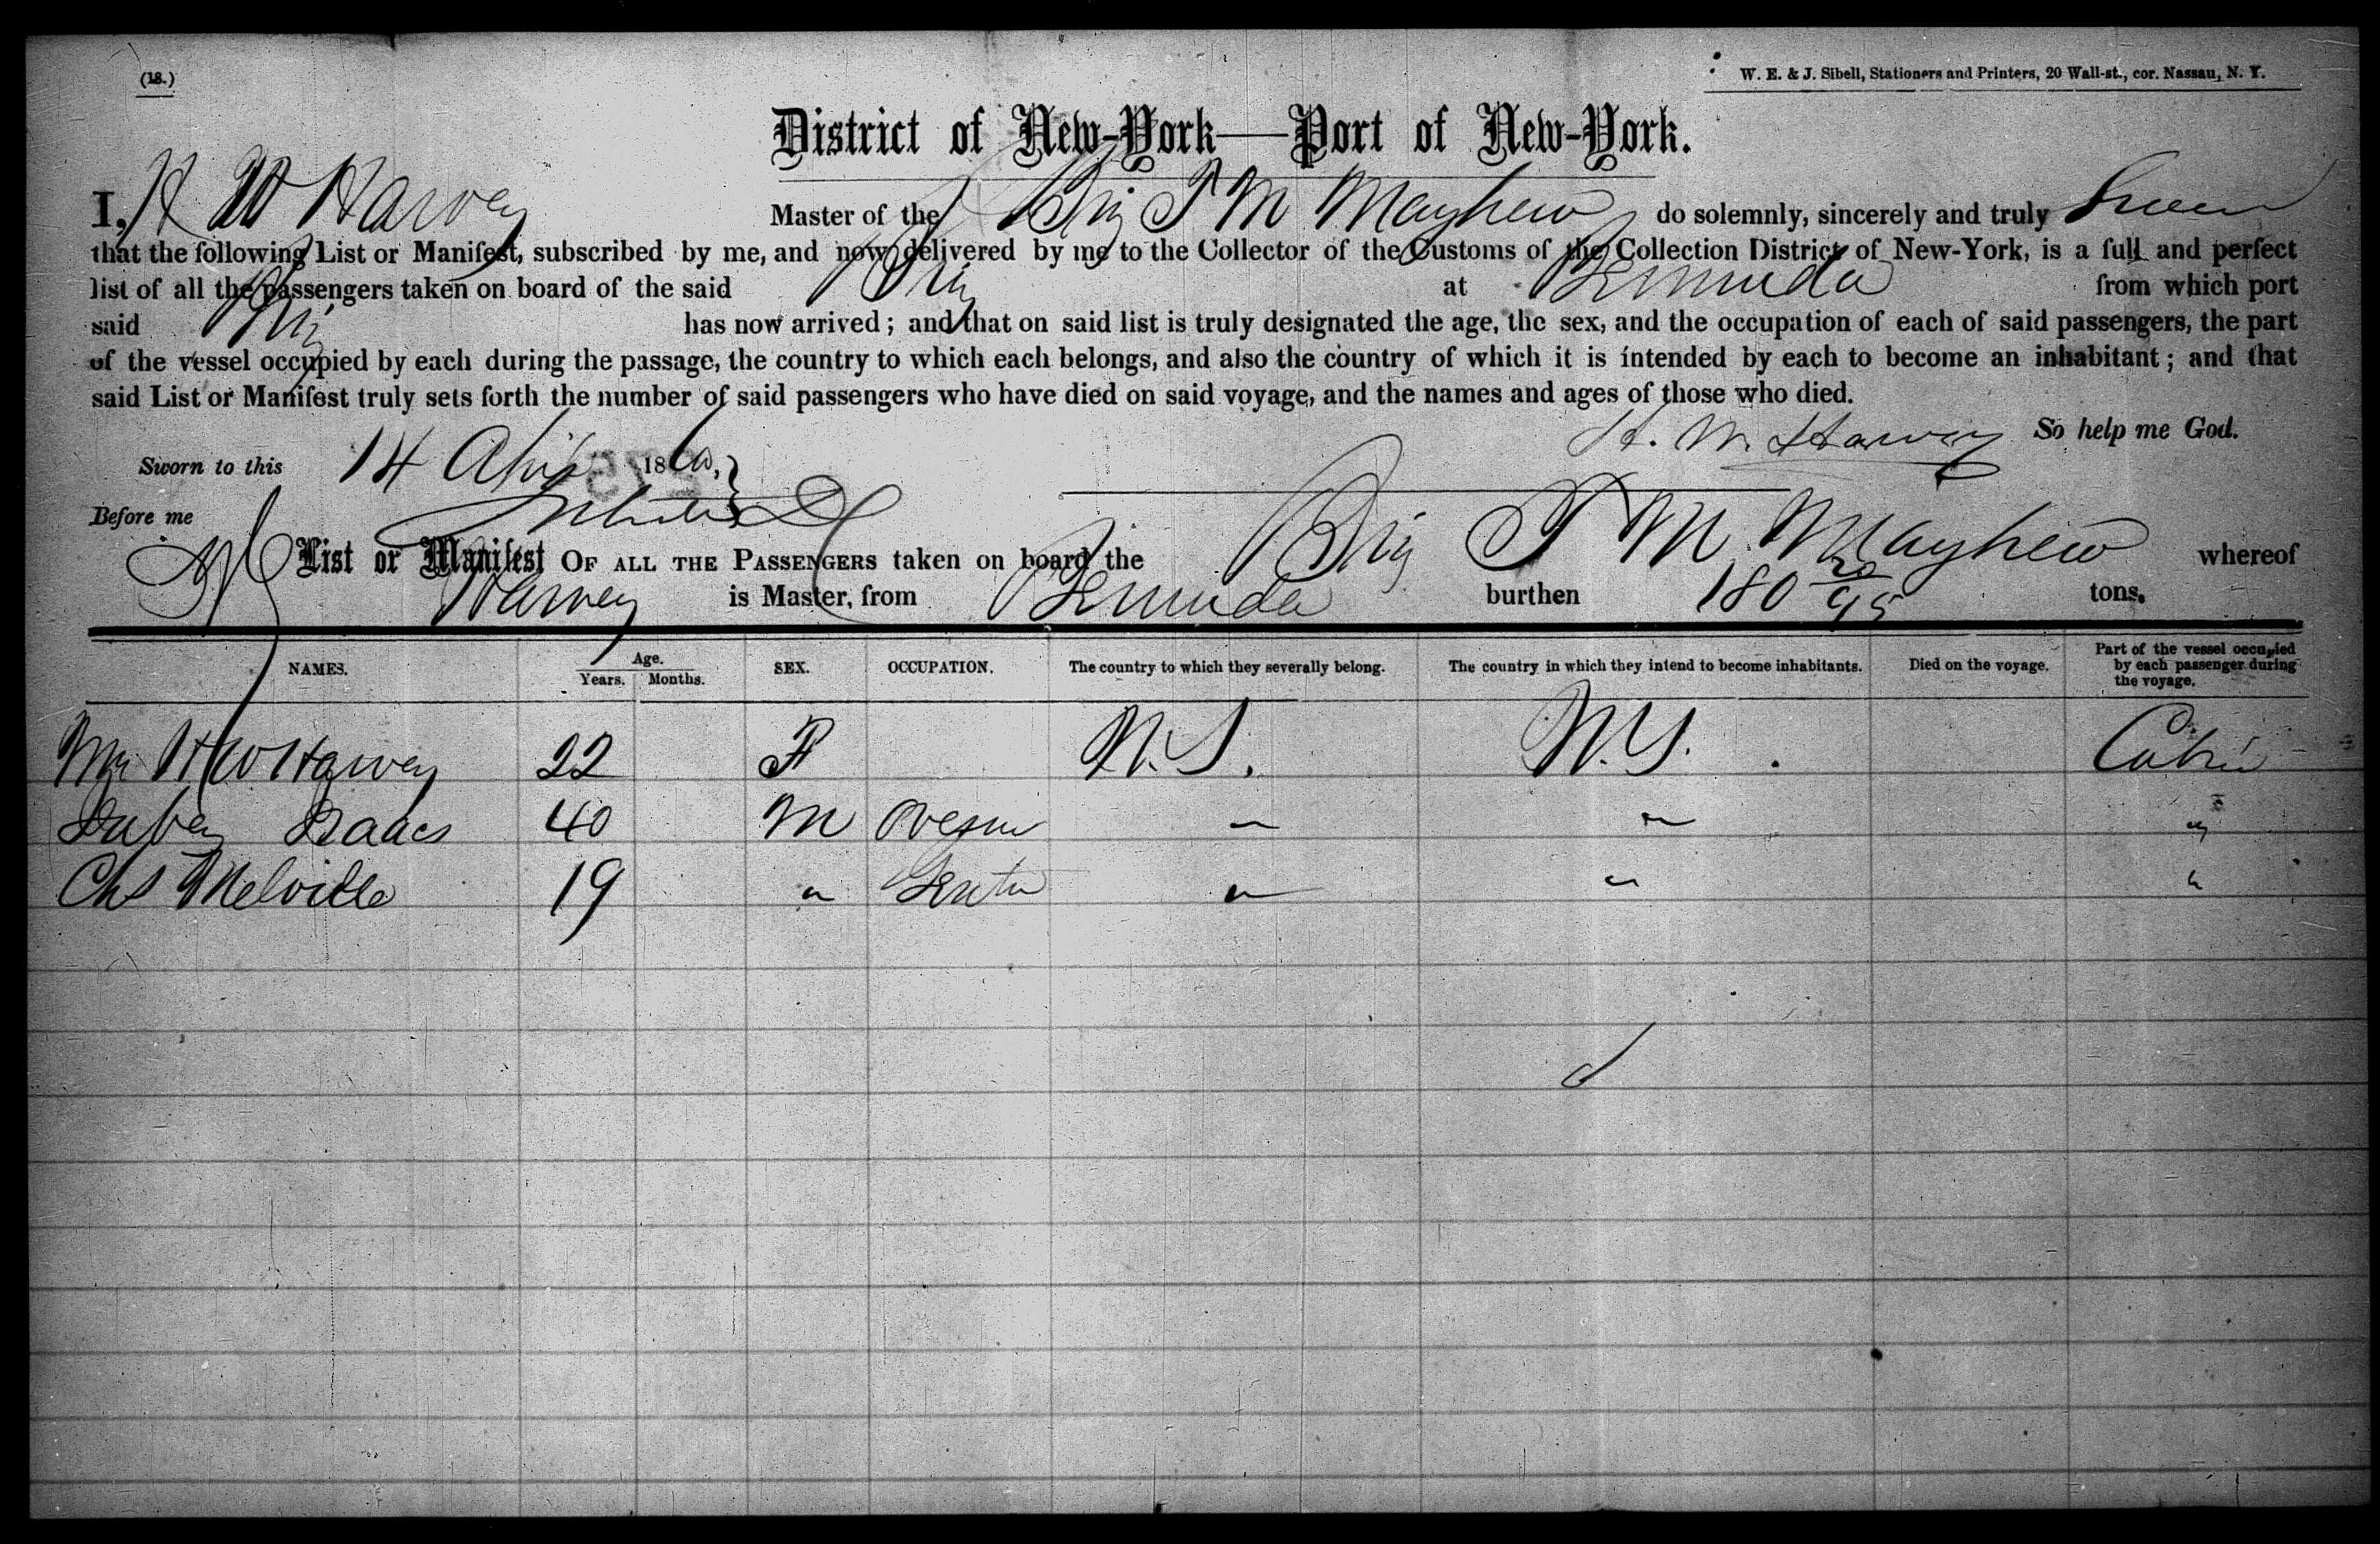 (18.)
W. E. & J. Sibell, Stationers and Printers, 20 Wall-st., cor. Nassau, N. Y.
District of New-York—Port of New-York.
I, H W Harvey Master of the Brig T M Mayhew do solemnly, sincerely and truly Swear
that the following List or Manifest, subscribed by me, and now delivered by me to the Collector of the Customs of the Collection District of New-York, is a full and perfect
list of all the passengers taken on board of the said Brig at Bermuda from which port
said Brig has now arrived; and that on said list is truly designated the age, the sex, and the occupation of each of said passengers, the part
of the vessel occupied by each during the passage, the country to which each belongs, and also the country of which it is intended by each to become an inhabitant; and that
said List or Manifest truly sets forth the number of said passengers who have died on said voyage, and the names and ages of those who died.
H. W. Harvey So help me God.
Sworn to this 14 April 1860,
Before me
List or Manifest OF ALL THE PASSENGERS taken on board the Brig T M Mayhew whereof
Harvey is Master, from Bermuda burthen 180 20/95 tons.
NAMES. Age. Years. Months. SEX. OCCUPATION. The country to which they severally belong. The country in which they intend to become inhabitants. Died on the voyage. Part of the vessel occupied by each passenger during the voyage.
H W Harvey 22 F N. Y. Cabin
Isaacs 40 M " " "
Chs Melville 19 " " " "